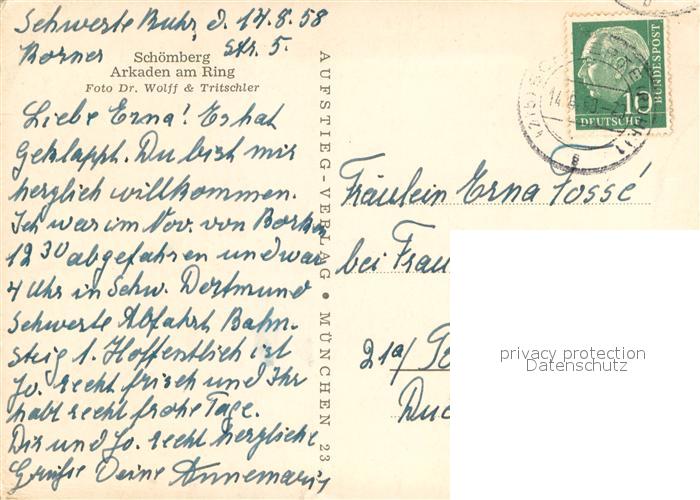 Schwerte Ruhr, d. 14.8.58
Borner Str. 5.
Schömberg
Arkaden am Ring
Foto Dr. Wolff & Tritschler
Liebe Erna! Es hat
geklappt. Du bist mir
herzlich willkommen.
Ich war im Nov. von Borken
12 30 abgefahren und war
4 Uhr in Schw. Dortmund
Schwerte Abfahrt Bahn-
steig 1. Hoffentlich ist
Jo. recht frisch und Ihr
habt recht frohe Tage.
Dir und Jo. recht herzliche
Grüße Deine Annemarie
AUFSTIEG-VERLAG • MÜNCHEN 23
10
DEUTSCHE
BUNDESPOST
Fräulein Erna Fossé
bei Frau
21a/
privacy protection
Datenschutz